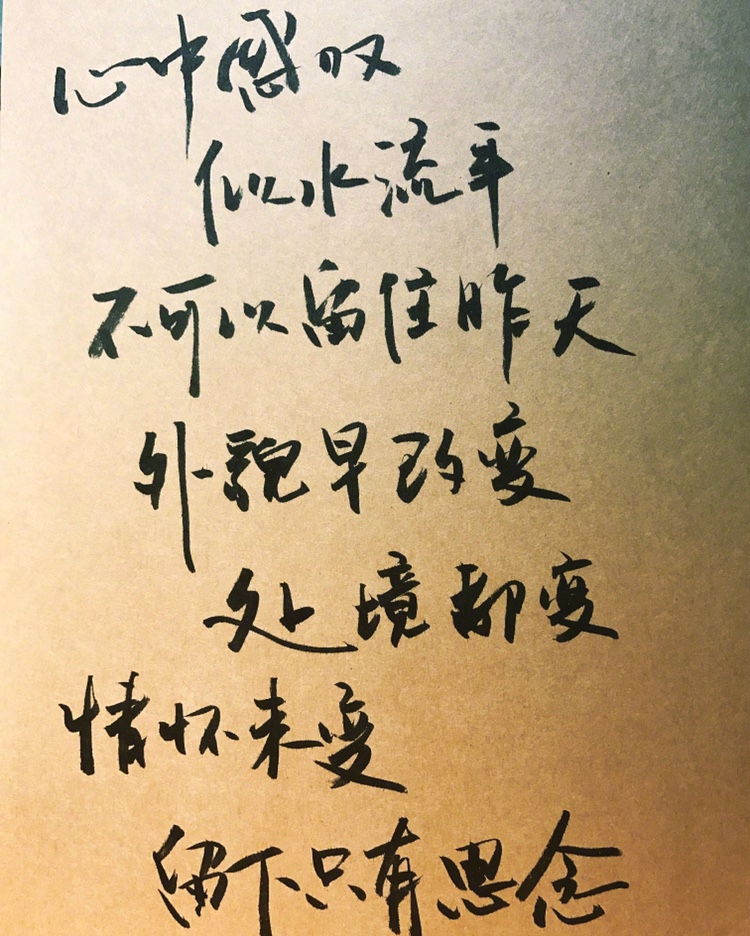 心中感叹
似水流年
不可以留住昨天
外貌早改变
处境都变
情怀未变
留下只有思念